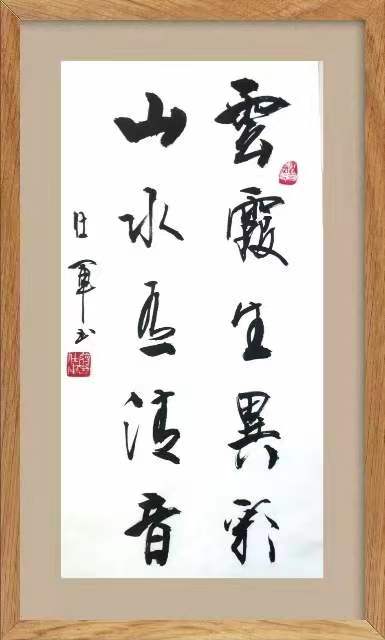 雲霞生異彩
山水有清音
軍书